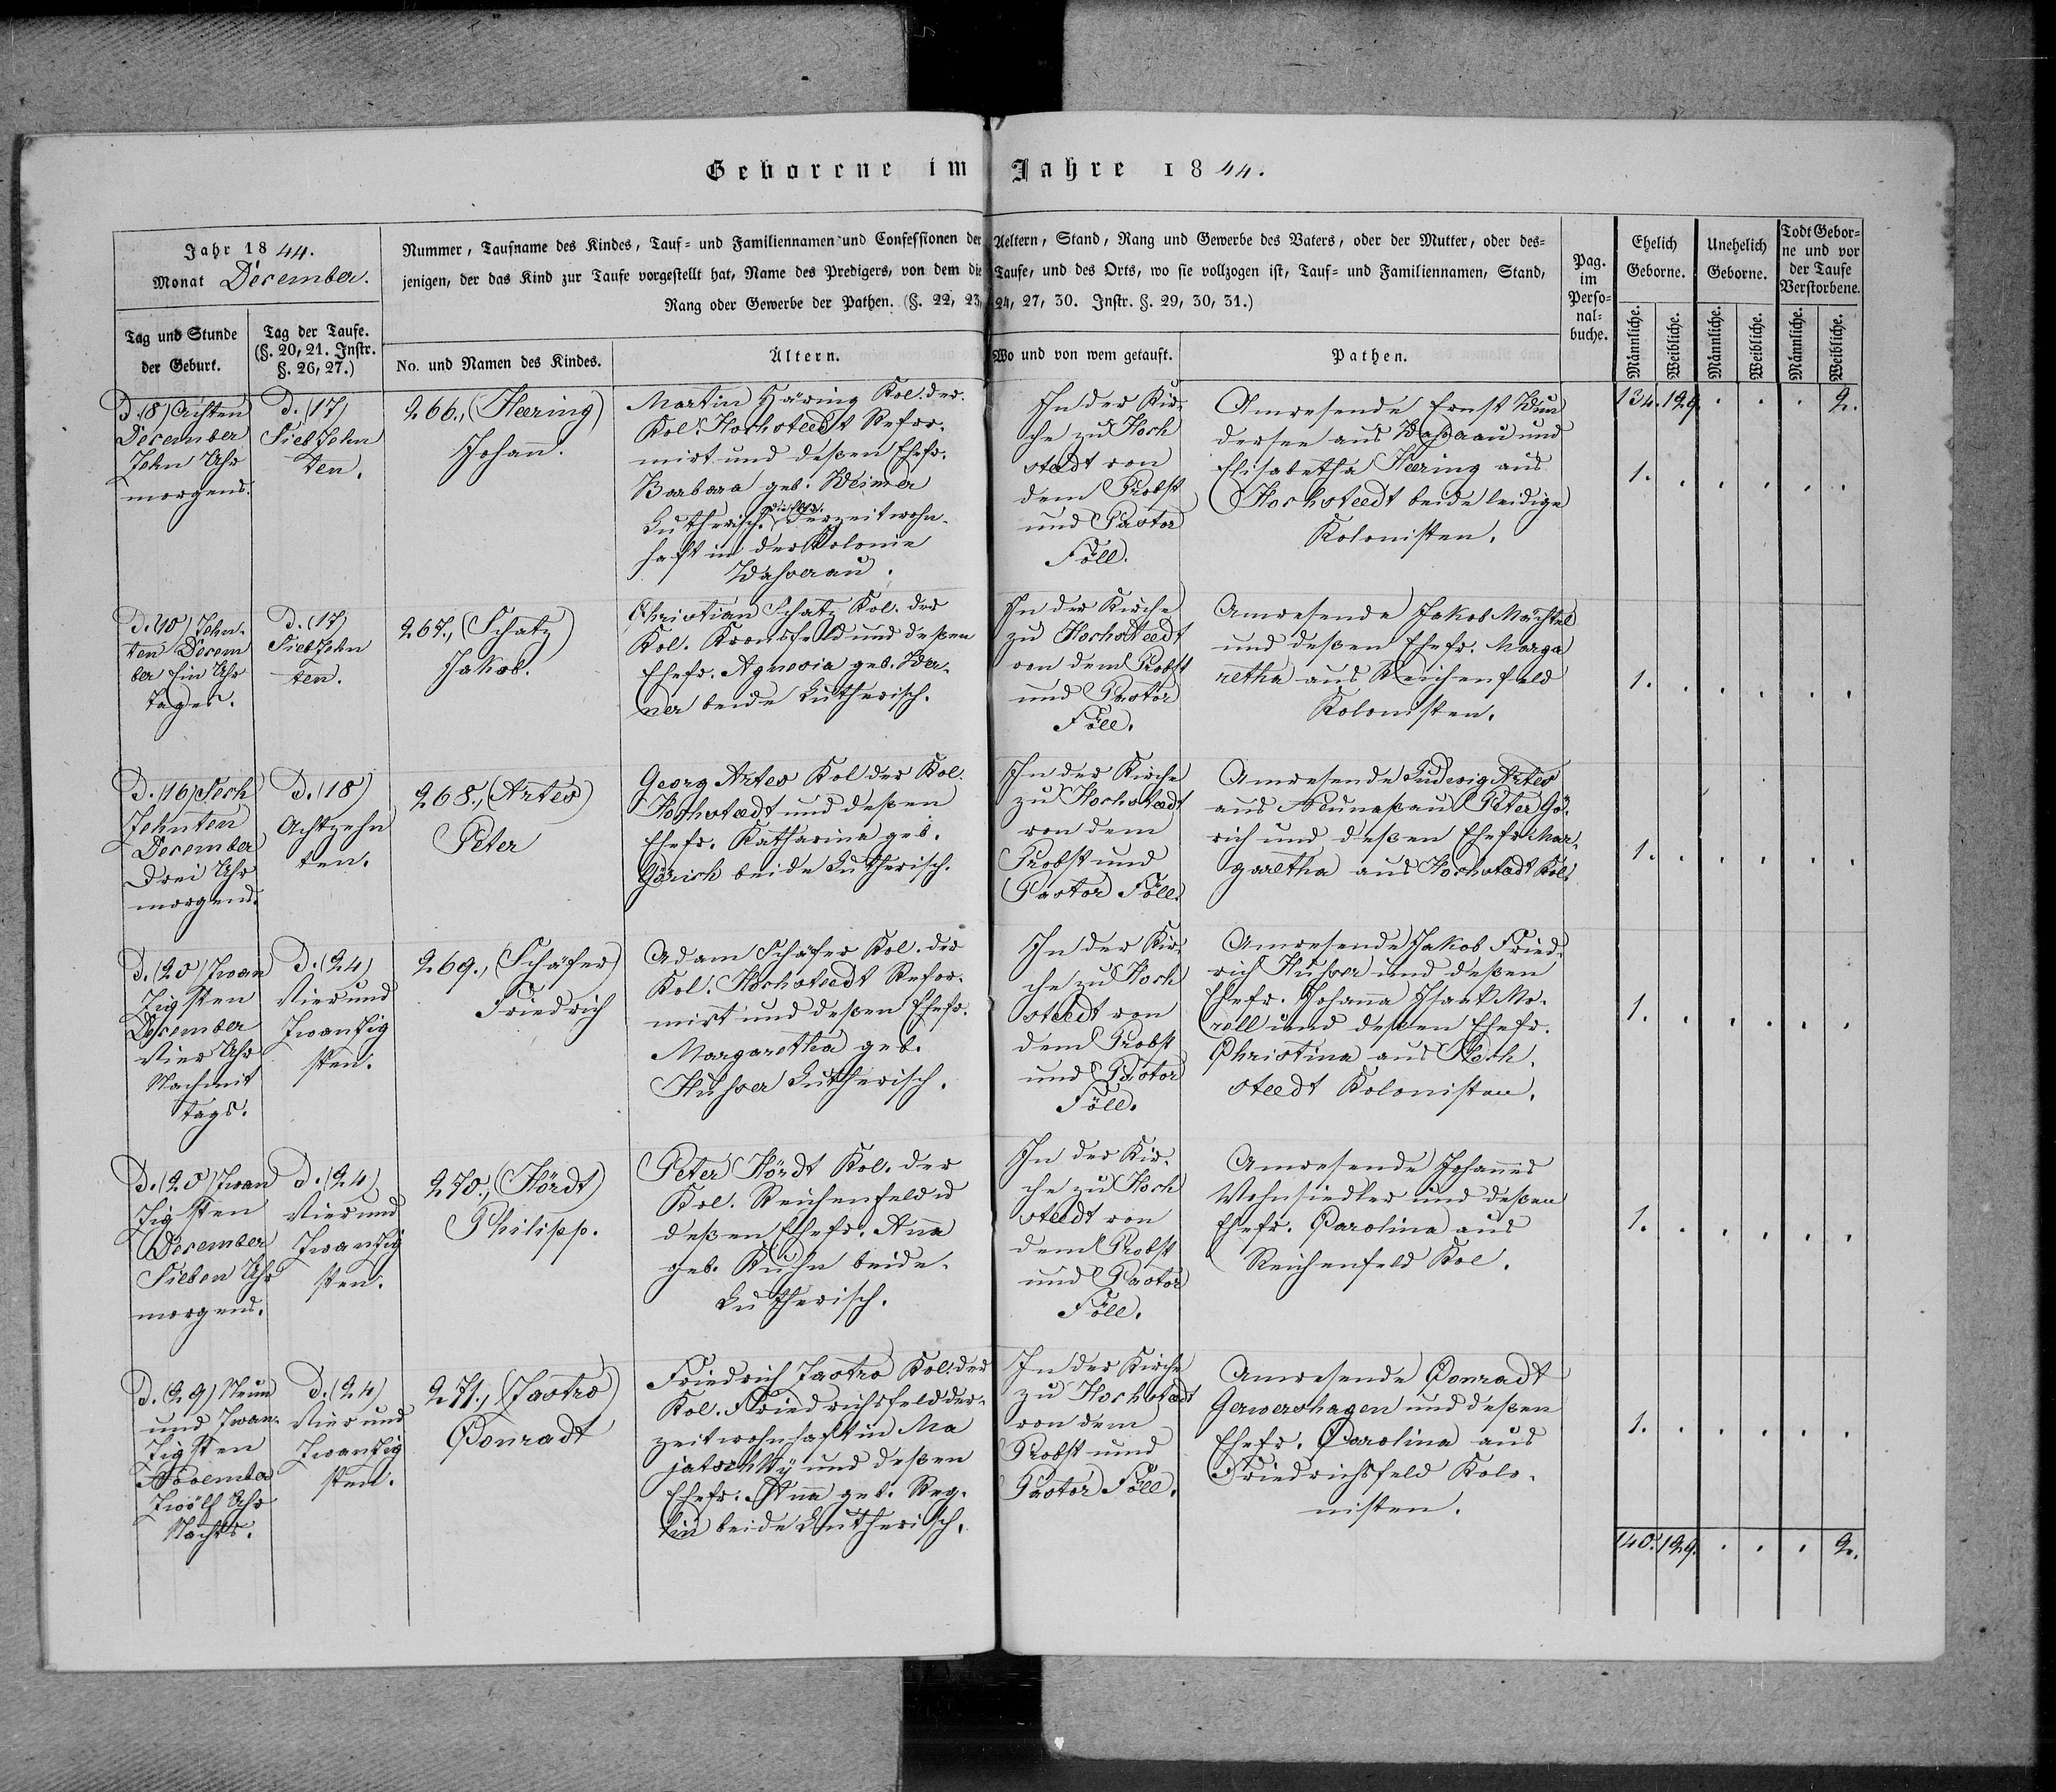 Geborene im Jahre 1844.
Jahr 1844.
Monat December.
Nummer, Taufname des Kindes, Tauf- und Familiennamen und Confessionen der Aeltern, Stand, Rang und Gewerbe des Vaters, oder der Mutter, oder des-
jenigen, der das Kind zur Taufe vorgestellt hat, Name des Predigers, von dem die Taufe, und des Orts, wo sie vollzogen ist, Tauf- und Familiennamen, Stand,
Rang oder Gewerbe der Pathen. (§. 22, 23, 24, 27, 30. Instr. §. 29, 30, 31.)
Pag.
im
Perso-
nal-
buche.
Ehelich
Geborne.
Unehelich
Geborne.
Todt Gebor-
ne und vor
der Taufe
Verstorbene.
Tag und Stunde
der Geburt.
Tag der Taufe.
(§. 20, 21. Instr.
§. 26, 27.)
No. und Namen des Kindes.
Ältern.
Wo und von wem getauft.
Pathen.
Männliche.
Weibliche.
Männliche.
Weibliche.
Männliche.
Weibliche.
134. 129. . . . 2.
D. (8) Achten
December
Zehn Uhr
morgens.
D. (17)
Siebzehn
ten.
266., (Heering)
Johann.
Martin Häring Kol. der
Kol. Hochstedt Refor-
mirt und deßen Ehefr.
Barbara geb. Weimer
Lutherisch. derzeit wohn-
haft in der Kolonie
Waßerau.
In der Kir-
che zu Hoch
stadt von
dem Probst
und Pastor
Föll.
Anwesende Ernst Wun
dersee aus Waßerau und
Elisabetha Heering aus
Hochsteedt beide ledige
Kolonisten.
1. . . . . .
D. (10) Zehn-
ten Decem
ber Ein Uhr
Tages.
D. (17)
Siebzehn
ten.
267., (Schatz)
Jakob.
Christian Schatz Kol. der
Kol. Kronsfeld und deßen
Ehefr. Agnesia geb. Wer-
ner beide Lutherisch.
In der Kirche
zu Hochstaedt
von dem Probst
und Pastor
Föll.
Anwesende Jakob Mächtel
und deßen Ehefr. Marga
retha aus Reichenfeld
Kolonisten.
1. . . . . .
D. (16) Sech
zehnten
December
Drei Uhr
morgens.
D. (18)
Achtzehn
ten.
268., (Artes)
Peter
Georg Artes Kol der Kol.
Hochstaedt und deßen
Ehefr. Katharina geb.
Görich beide Lutherisch.
In der Kirche
zu Hochstaedt
von dem
Probst und
Pastor Föll.
Anwesende Ludwig Artes
aus Neunaßau Peter Gö-
rich und deßen Ehefr. Mar-
garetha aus Hochstadt Kol.
1. . . . . .
D. (20) Zwan
zigsten
December
Vier Uhr
Nachmit
tags.
D. (24)
Vier und
Zwanzig
sten.
269., (Schäfer)
Friedrich
Adam Schäfer Kol. der
Kol. Hochsteedt Refor-
mirt und deßen Ehefr.
Margaretha geb.
Huhser Lutherisch.
In der Kir-
che zu Hoch
steedt von
dem Probst
und Pastor
Föll.
Anwesende Jakob Fried-
rich Huhser und deßen
Ehefr. Johanna Isaak Mo-
rell und deßen Ehefr.
Christina aus Hoch-
steedt Kolonisten.
1. . . . . .
D. (20) Zwan
zigsten
December
Sieben Uhr
morgens.
D. (24)
Vier und
Zwanzig
sten.
270., (Hördt)
Philipp.
Peter Hördt Kol. der
Kol. Reichenfeld u
deßen Ehefr. Anna
geb. Kuhn beide
Lutherisch.
In der Kir-
che zu Hoch
steedt von
dem Probst
und Pastor
Föll.
Anwesende Johannes
Wohnsiedler und deßen
Ehefr. Carolina aus
Reichenfeld Kol.
1. . . . . .
D. (29) Neun
und Zwan-
zigsten
November
Zwölf Uhr
Nachts.
D. (24)
Vier und
Zwanzig
sten.
271., (Jastro)
Conradt
Friedrich Jastro Kol. der
Kol. Friedrichsfeld der-
zeit wohnhaft in Ma
und deßen
Ehefr. Anna geb. Reg-
lin beide Lutherisch.
In der Kirche
zu Hochstaedt
von dem
Probst und
Pastor Föll.
Anwesende Conradt
Gerwershagen und deßen
Ehefr. Carolina aus
Friedrichsfeld Kolo-
nisten.
1. . . . . .
140. 129. . . . 2.